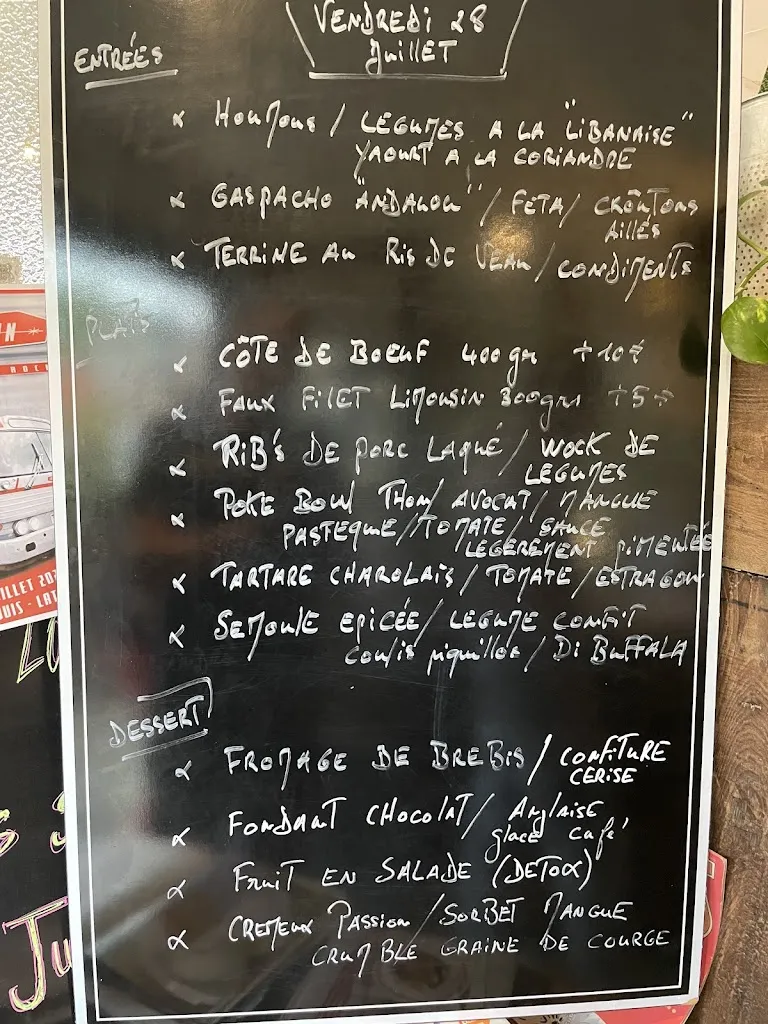 VENDREDI 28
JUILLET
ENTRÉES
HOUMOUS / LEGUMES A LA "LIBANAISE"
YAOURT A LA CORIANDRE
GASPACHO "ANDALOU" / FETA / CROÛTONS
AILLÉS
TERRINE AU RIS DE VEAU / CONDIMENTS
PLATS
CÔTE DE BOEUF 400gr +10€
FAUX FILET LIMOUSIN 300grs +5€
RIB'S DE PORC LAQUÉ / WOCK DE
LEGUMES
POKE BOWL THON / AVOCAT / MANGUE
PASTEQUE / TOMATE / SAUCE
LÉGÈREMENT PIMENTÉE
TARTARE CHAROLAIS / TOMATE / ESTRAGON
SEMOULE EPICÉE / LEGUME CONFIT
COULIS piquillos / DI BUFFALA
DESSERT
FROMAGE DE BREBIS / CONFITURE
CERISE
FONDANT CHOCOLAT / ANGLAISE
glace café
FRUIT EN SALADE (DETOX)
CREMEUX PASSION / SORBET MANGUE
CRUMBLE GRAINE DE COURGE